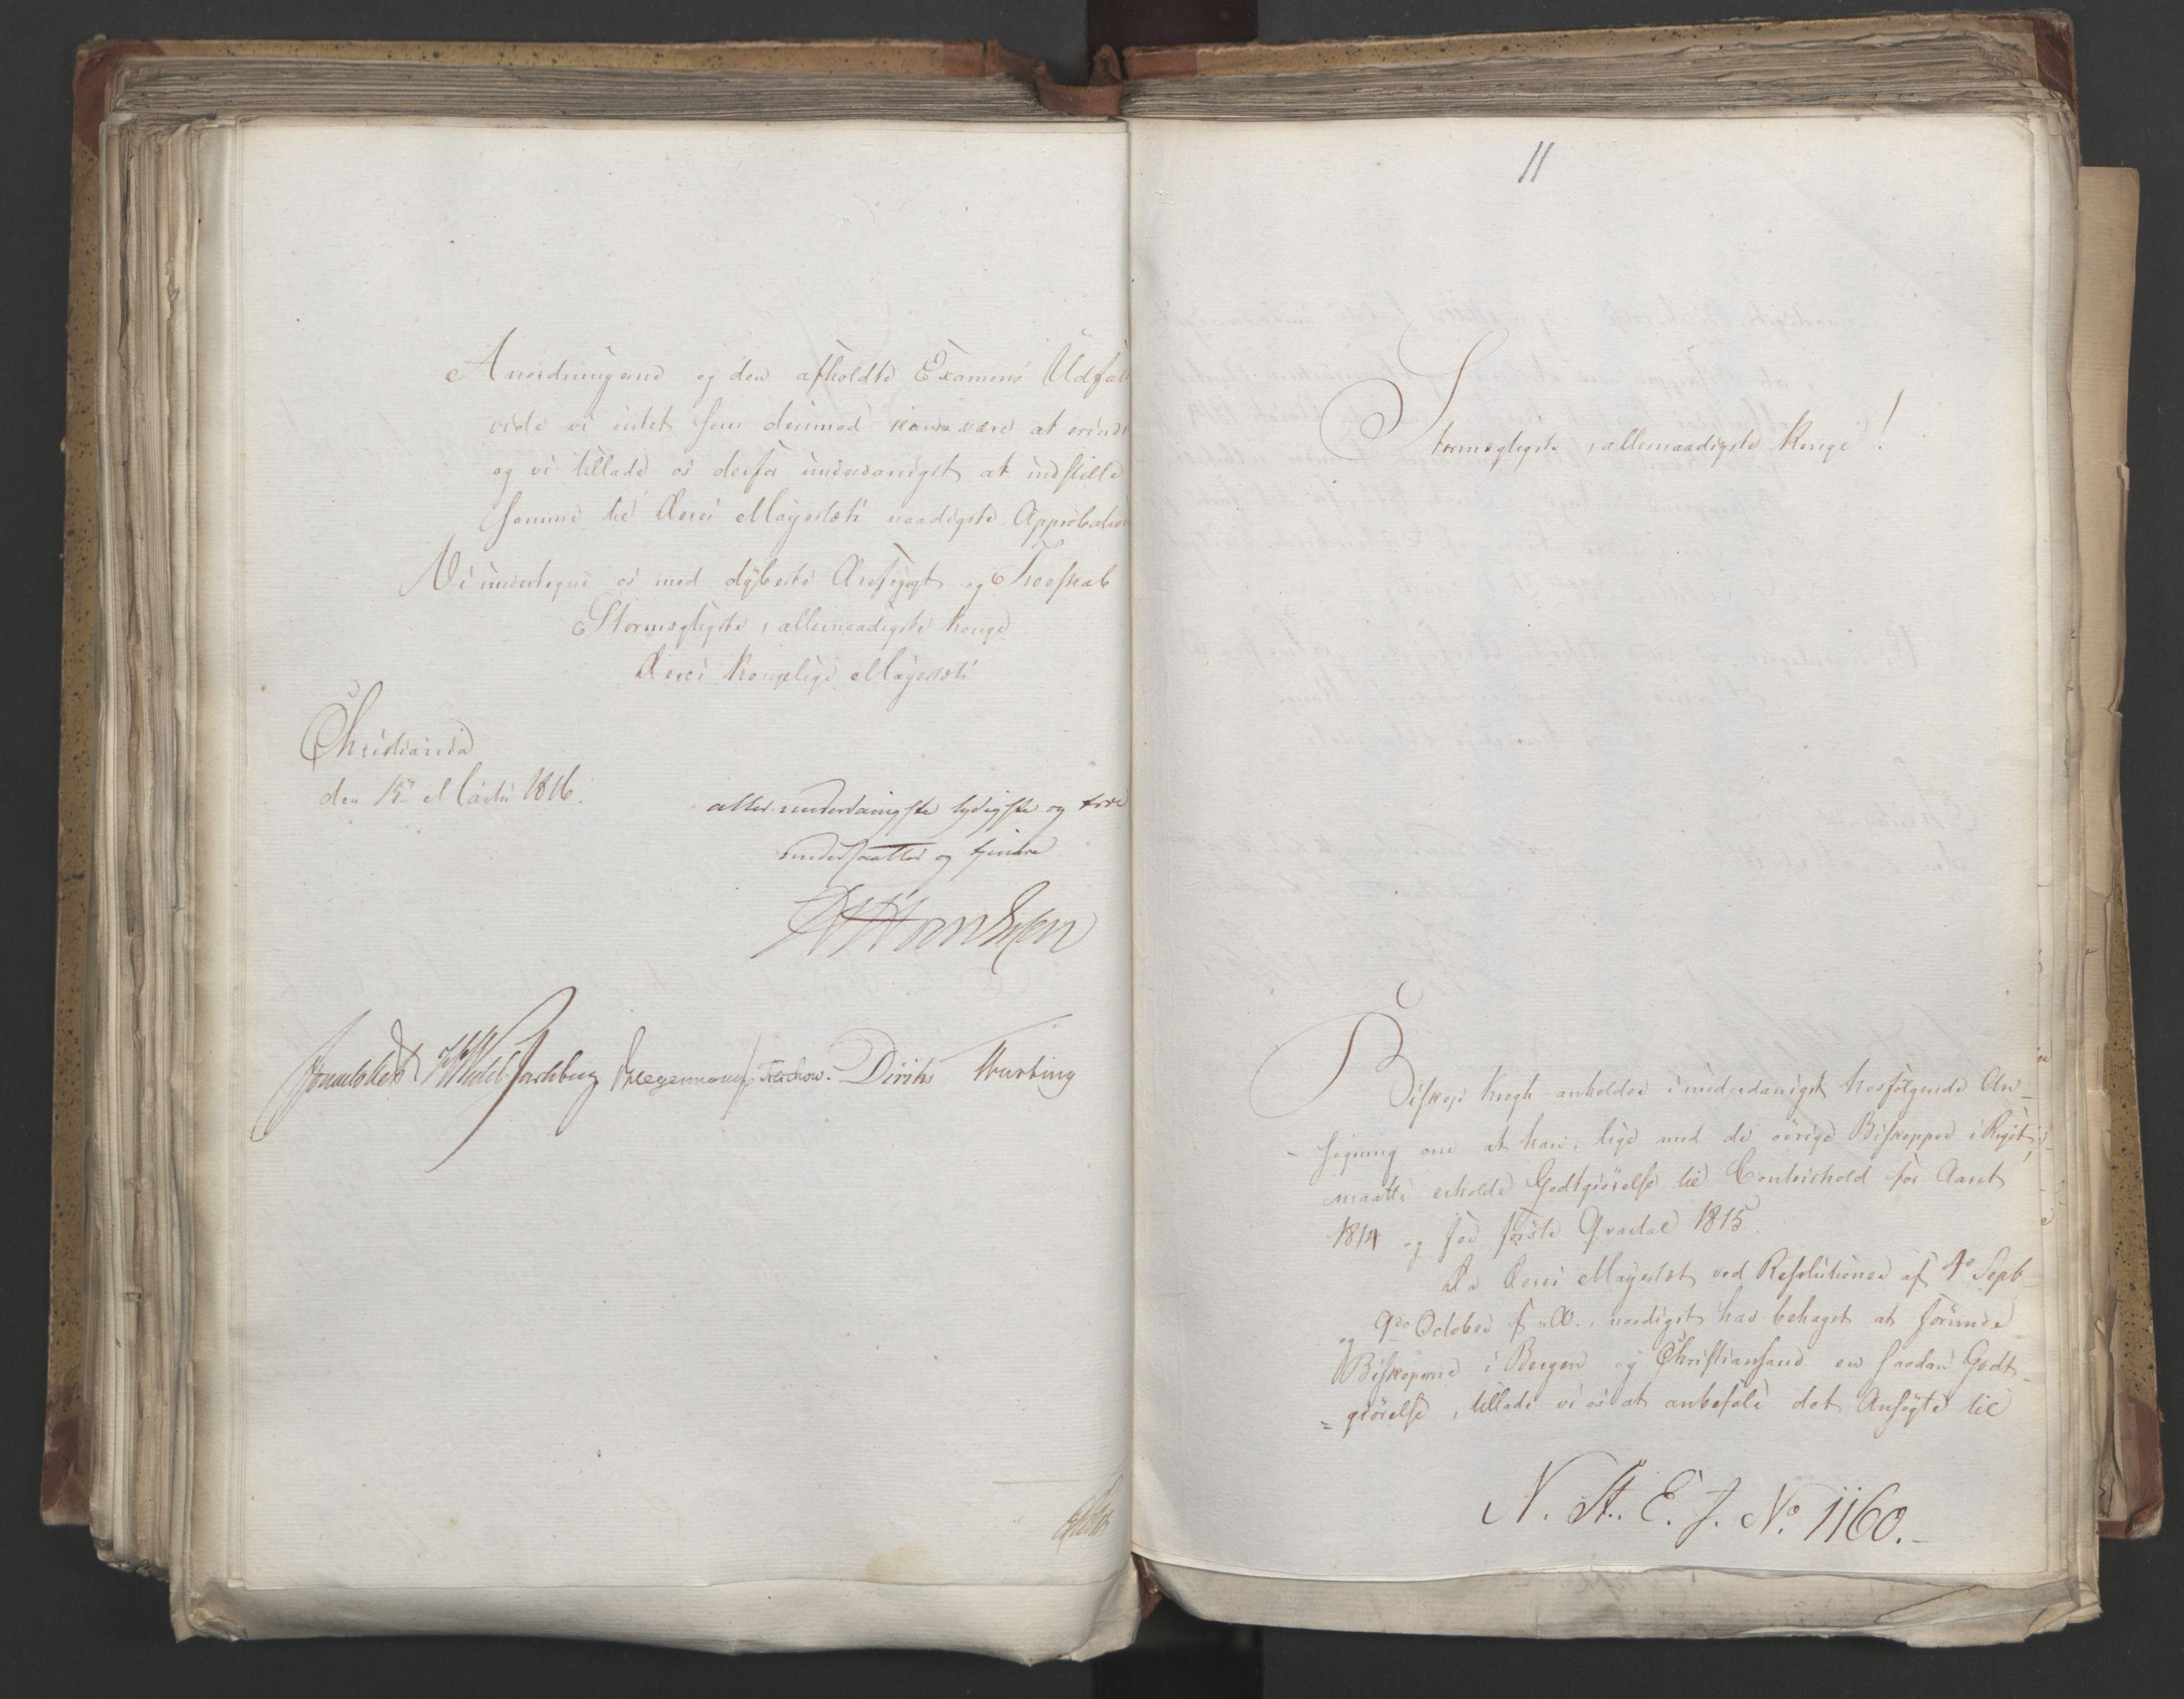 Anordningerne og den afholdte Examens Udfal
vide vi intet som derimod kunde være at erindr
og vi tillade os derfor underdanigst at indstille
samme til Deres Majestæts naadigste Approbation
Vi undertegne os med dybeste Ærefrygt og Troeskab
Stormægtigste, allernaadigste Konge
Deres Kongelige Majestæts
Christiania
den 15 Marts 1816.
allerunderdanigste lydigste og troe
undersaatter og tjenere
Sommerhielm Wedel Jarlsberg Hegermann Treschow. Diriks Thurbing
11
Stormægtigste, allernaadigste Konge!
Biskop Krogh anholder i underdanigst hosfølgende An-
søgning om at han, lige med de øvrige Biskopper i Riget,
maatte erholde Godtgiørelse til Contoirhold for Aaret
1814 og for første Qvartal 1815.
Da Deres Majestæt ved Resolutioner af 4de Septb
og 9de October f. A., naadigst har behaget at forunde
Biskoperne i Bergen og Christiansand en saadan Godt-
=giørelse, tillade vi os at anbefale det Ansøgte til
N. St. E. J. No. 1160.-